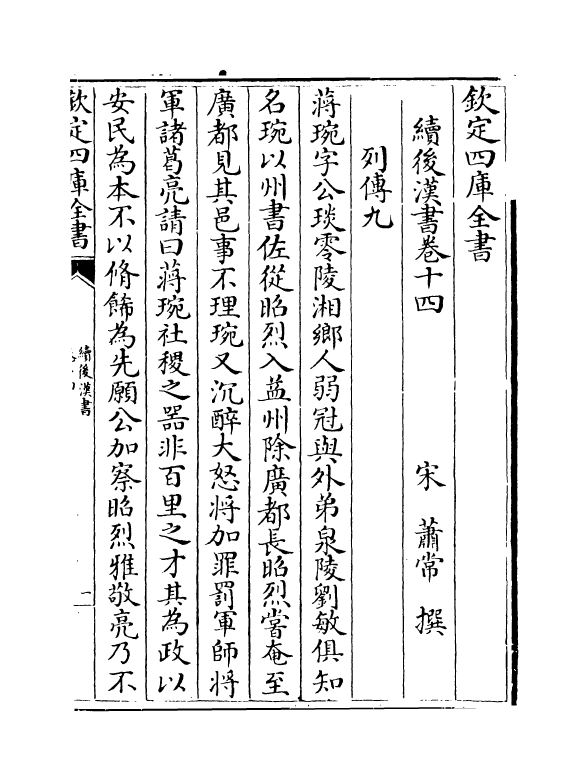 欽定四庫全書
續後漢書卷十四
宋　蕭常　撰
列傳九
蔣琬字公琰零陵湘鄉人弱冠與外弟泉陵劉敏俱知
名琬以州書佐從昭烈入益州除廣都長昭烈嘗奄至
廣都見其邑事不理琬又沉醉大怒將加罪罰軍師將
軍諸葛亮請曰蔣琬社稷之器非百里之才其為政以
安民為本不以脩飾為先願公加察昭烈雅敬亮乃不
欽定四庫全書
續後漢書
一